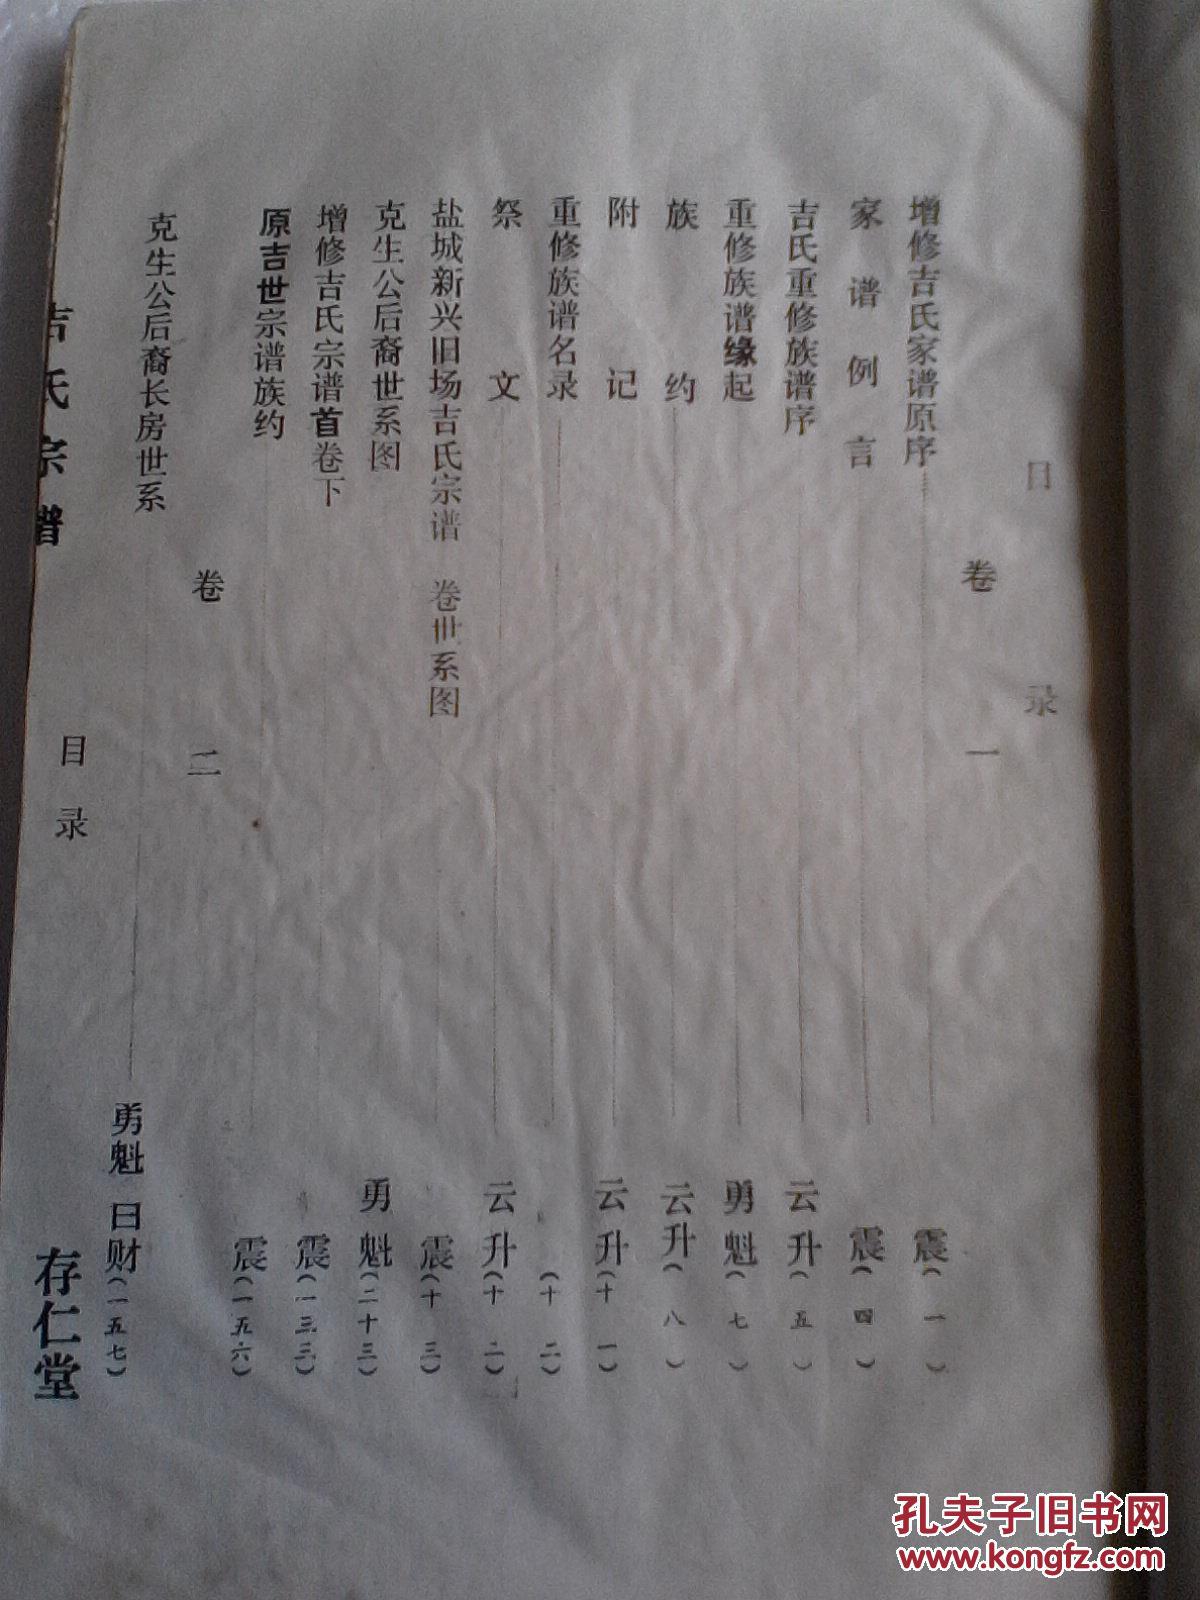 目录
卷一
增修吉氏家谱原序 震(一)
家谱例言 震(四)
吉氏重修族谱序 云升(五)
重修族谱缘起 勇魁(七)
族约 云升(八)
附记 云升(十一)
重修族谱名录 (十二)
祭文 云升(十二)
盐城新兴旧场吉氏宗谱 卷世系图 震(十三)
克生公后裔世系图 勇魁(二十三)
增修吉氏宗谱首卷下 震(一三三)
原吉世宗谱族约 震(一五六)
卷二
克生公后裔长房世系 勇魁 日财(一五七)
吉氏宗谱 目录 存仁堂
孔夫子旧书网
www.kongfz.com